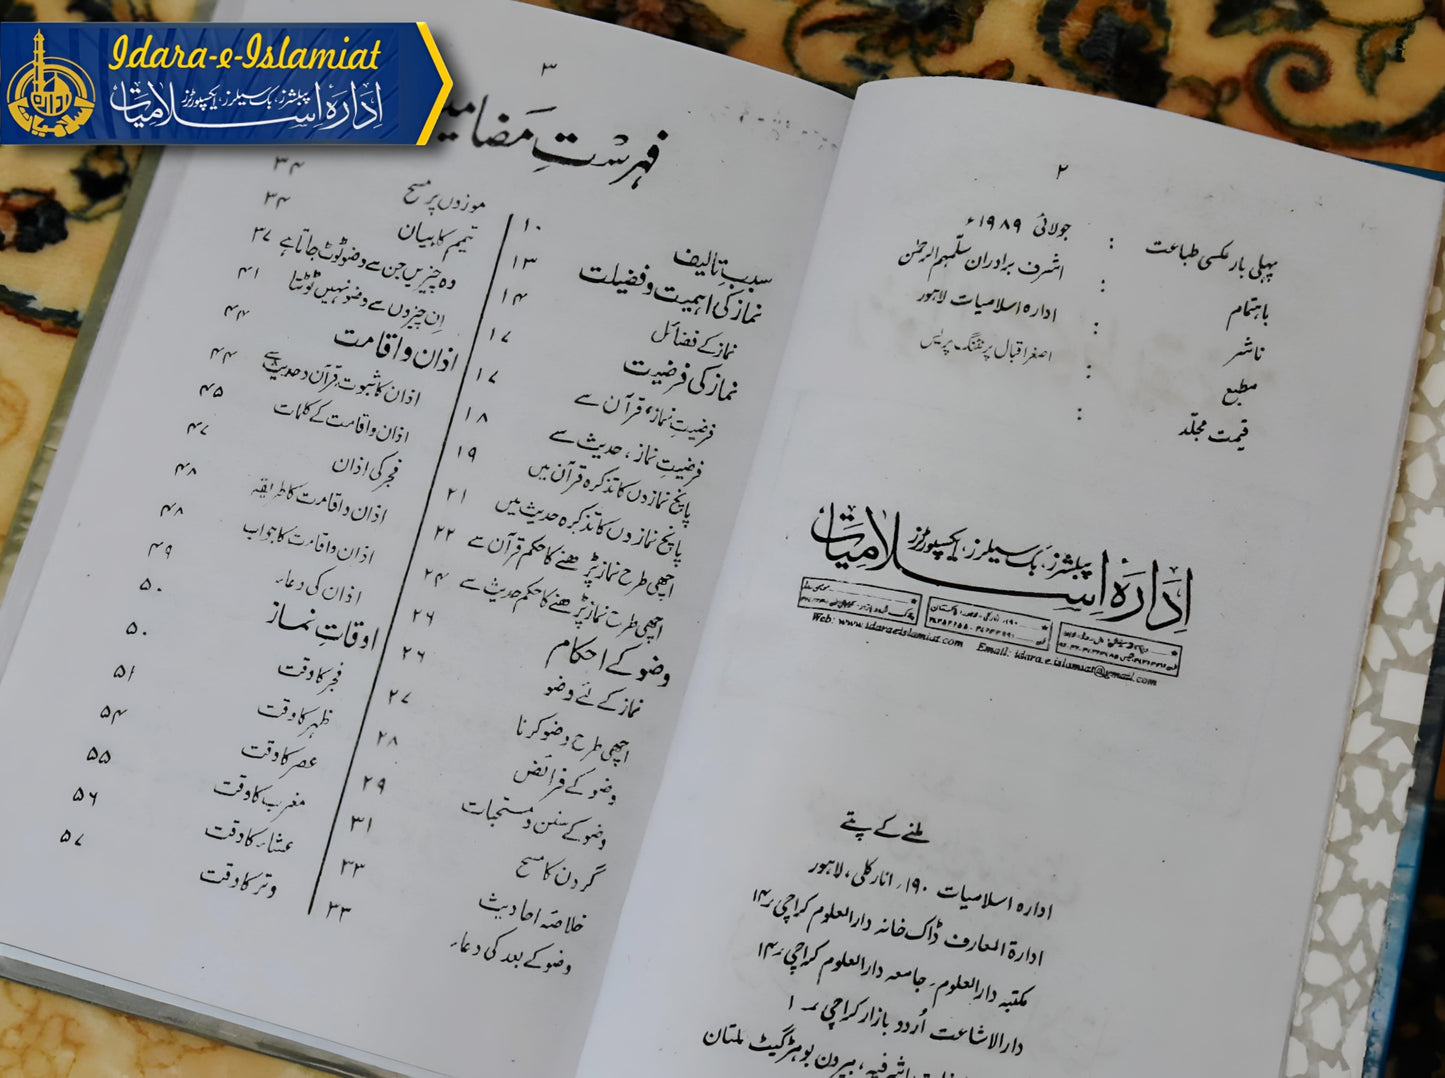 Idara-e-Islamiat
ادارہ اسلامیات
پبلشرز، بک سیلرز، ایکسپورٹرز
۲
پہلی بار عکسی طباعت : جولائی ۱۹۸۹ء
باہتمام : اشرف برادران سلّمہم الرحمٰن
ناشر : ادارہ اسلامیات لاہور
مطبع : اصغر اقبال پرنٹنگ پریس
قیمت مجلّد :
ادارہ اسلامیات
پبلشرز، بک سیلرز، ایکسپورٹرز
Web: www.idaraeislamiat.com Email: idara.e.islamiat@gmail.com
ملنے کے پتے
ادارہ اسلامیات ۱۹۰، انارکلی، لاہور
ادارۃ المعارف ڈاک خانہ دارالعلوم کراچی ۱۴
مکتبہ دارالعلوم، جامعہ دارالعلوم کراچی ۱۴
دارالاشاعت اُردو بازار کراچی ۱
بیرون بوہڑ گیٹ ملتان
۳
فہرستِ مضامین
سببِ تالیف ۱۰
نماز کی اہمیت و فضیلت ۱۳
نماز کے فضائل ۱۴
نماز کی فرضیت ۱۷
فرضیتِ نماز، قرآن سے ۱۷
فرضیتِ نماز، حدیث سے ۱۸
پانچ نمازوں کا تذکرہ قرآن میں ۱۹
پانچ نمازوں کا تذکرہ حدیث میں ۲۱
اچھی طرح نماز پڑھنے کا حکم قرآن سے ۲۲
اچھی طرح نماز پڑھنے کا حکم حدیث سے ۲۴
وضو کے احکام ۲۶
نماز کے لئے وضو ۲۶
اچھی طرح وضو کرنا ۲۷
وضو کے فرائض ۲۸
وضو کے سنن و مستحبات ۲۹
گردن کا مسح ۳۱
خلاصۂ احادیث ۳۳
وضو کے بعد کی دعاء ۳۳
موزوں پر مسح ۳۴
تیمم کا بیان ۳۴
وہ چیزیں جن سے وضو ٹوٹ جاتا ہے ۳۷
اِن چیزوں سے وضو نہیں ٹوٹتا ۴۱
اذان و اقامت ۴۴
اذان کا ثبوت قرآن و حدیث سے ۴۴
اذان و اقامت کے کلمات ۴۵
فجر کی اذان ۴۷
اذان و اقامت کا طریقہ ۴۸
اذان و اقامت کا جواب ۴۸
اذان کی دعاء ۴۹
اوقاتِ نماز ۵۰
فجر کا وقت ۵۰
ظہر کا وقت ۵۱
عصر کا وقت ۵۴
مغرب کا وقت ۵۵
عشاء کا وقت ۵۶
وتر کا وقت ۵۷